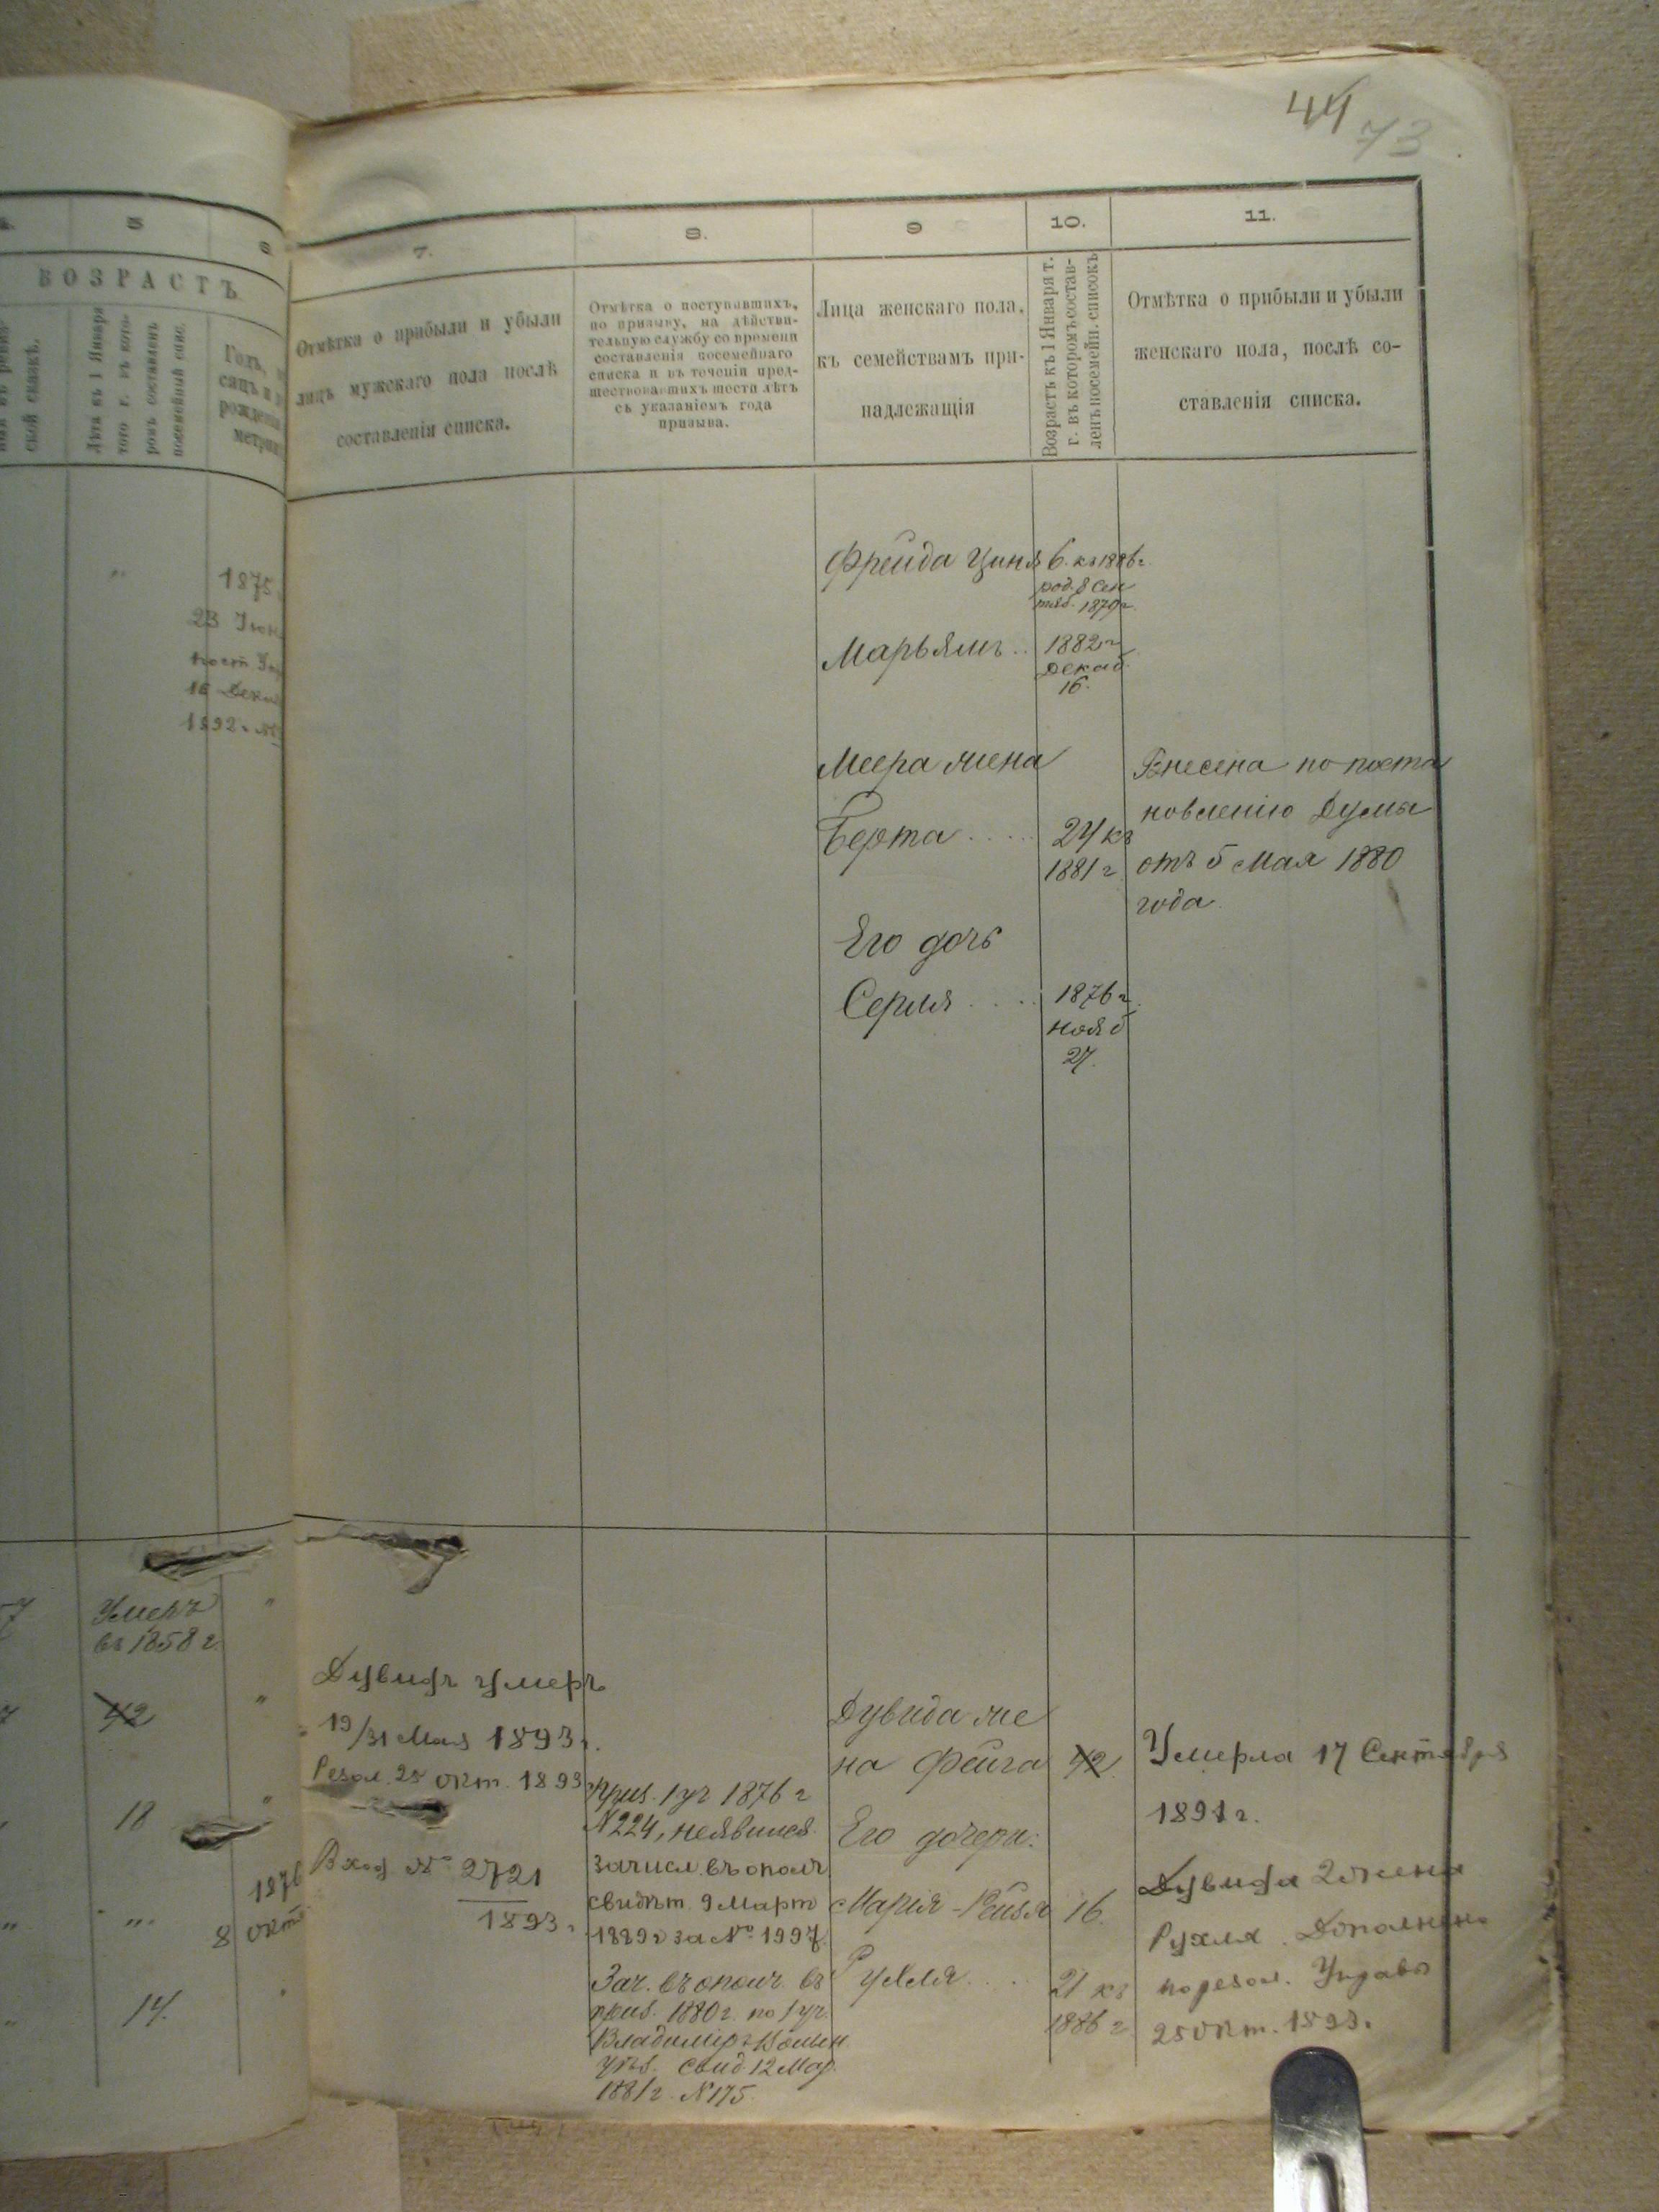 44
73
5
6
7.
8.
9
10.
11.
ВОЗРАСТЪ
ской сказкѣ.
Лѣта къ 1 Января
того г. въ кото-
ромъ составленъ
посемейный спис.
Отмѣтка о прибыли и убыли
лицъ мужскаго пола послѣ
составленія списка.
Отмѣтка о поступавшихъ,
по призыву, на дѣйстви-
тельную службу со времени
составленія посемейнаго
списка и въ теченіи пред-
шествовавшихъ шести лѣтъ
съ указаніемъ года
призыва.
Лица женскаго пола,
къ семействамъ при-
надлежащія
Возрастъ къ 1 Января т.
г. въ которомъ состав-
ленъ посемейн. списокъ
Отмѣтка о прибыли и убыли
женскаго пола, послѣ со-
ставленія списка.
1875
23 Іюн
16 Декаб
1892 г.
Фрейда Циня 6. къ 1886 г.
род. 8 Сен
тяб. 1879 г.
Марьямъ .. 1882 г
Декаб.
16.
Меера жена
Берта ..... 24 къ
1881 г
Внесена по поста
новленію Думы
отъ 5 Мая 1880
года
Его дочь
Серля .... 1876 г.
нояб
27.
Умеръ
въ 1858 г.
42
18
1876
8 окт
14.
Дувидъ умеръ
19/31 Мая 1893 г.
Резол. 25 окт. 1893
Вход № 2721
1893 г
Приз. 1 уч 1876 г
N 224, неявился
зачисл. въ ополч
свидѣт. 9 Март
1889 г за № 1997.
Зач. въ ополч. въ
приз. 1880 г. по 1 уч.
Владиміръ-Волын
уѣз. Свид. 12 Мар.
1881 г. N 175.
Дувида же
на Фейга 42.
Его дочери:
Марія-Рейзя 16.
Рухля .... 21 къ
1886 г
Умерла 17 Сентября
1891 г.
Дувида 2 жена
Рухля. Дополнено
по резол. Управы
25 окт. 1893.